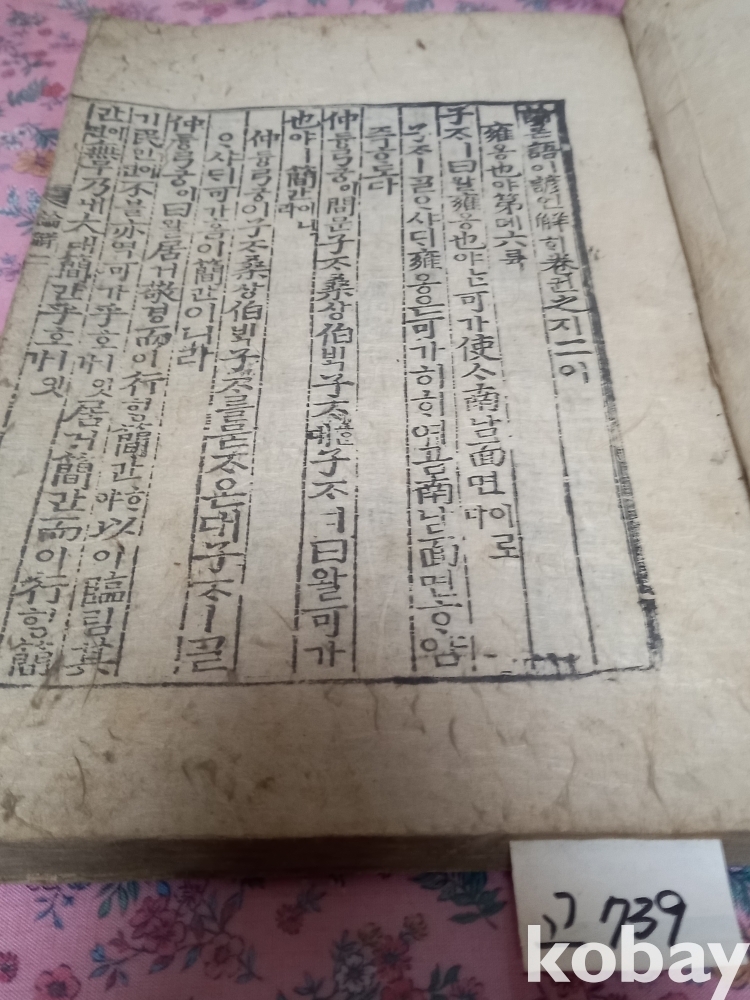 論론語어諺언解ᄒᆡ卷권之지二이
雍옹也야第뎨六륙
子ᄌᆞㅣ曰왈雍옹也야ᄂᆞᆫ可가使ᄉᆞ南남面면이로다
子ᄌᆞㅣᄀᆞᆯᄋᆞ샤ᄃᆡ雍옹은可가히ᄒᆞ여곰南남面면ᄒᆞ얌
즉ᄒᆞ도다
仲듕弓궁이問문子ᄌᆞ桑상伯ᄇᆡᆨ子ᄌᆞᄒᆞᆫ대子ᄌᆞㅣ曰왈可가
也야ㅣ簡간이니라
仲듕弓궁이子ᄌᆞ桑상伯ᄇᆡᆨ子ᄌᆞ를묻ᄌᆞ온대子ᄌᆞㅣᄀᆞᆯ
ᄋᆞ샤ᄃᆡ可가홈이簡간이니라
仲듕弓궁이曰왈居거敬경而이行ᄒᆡᆼ簡간ᄒᆞ야以이臨림其
기民민이면不블亦역可가乎호ㅣ잇가居거簡간而이行ᄒᆡᆼ簡
간이면無무乃내大태簡간乎호ㅣ잇가
論解二
고 739
kobay